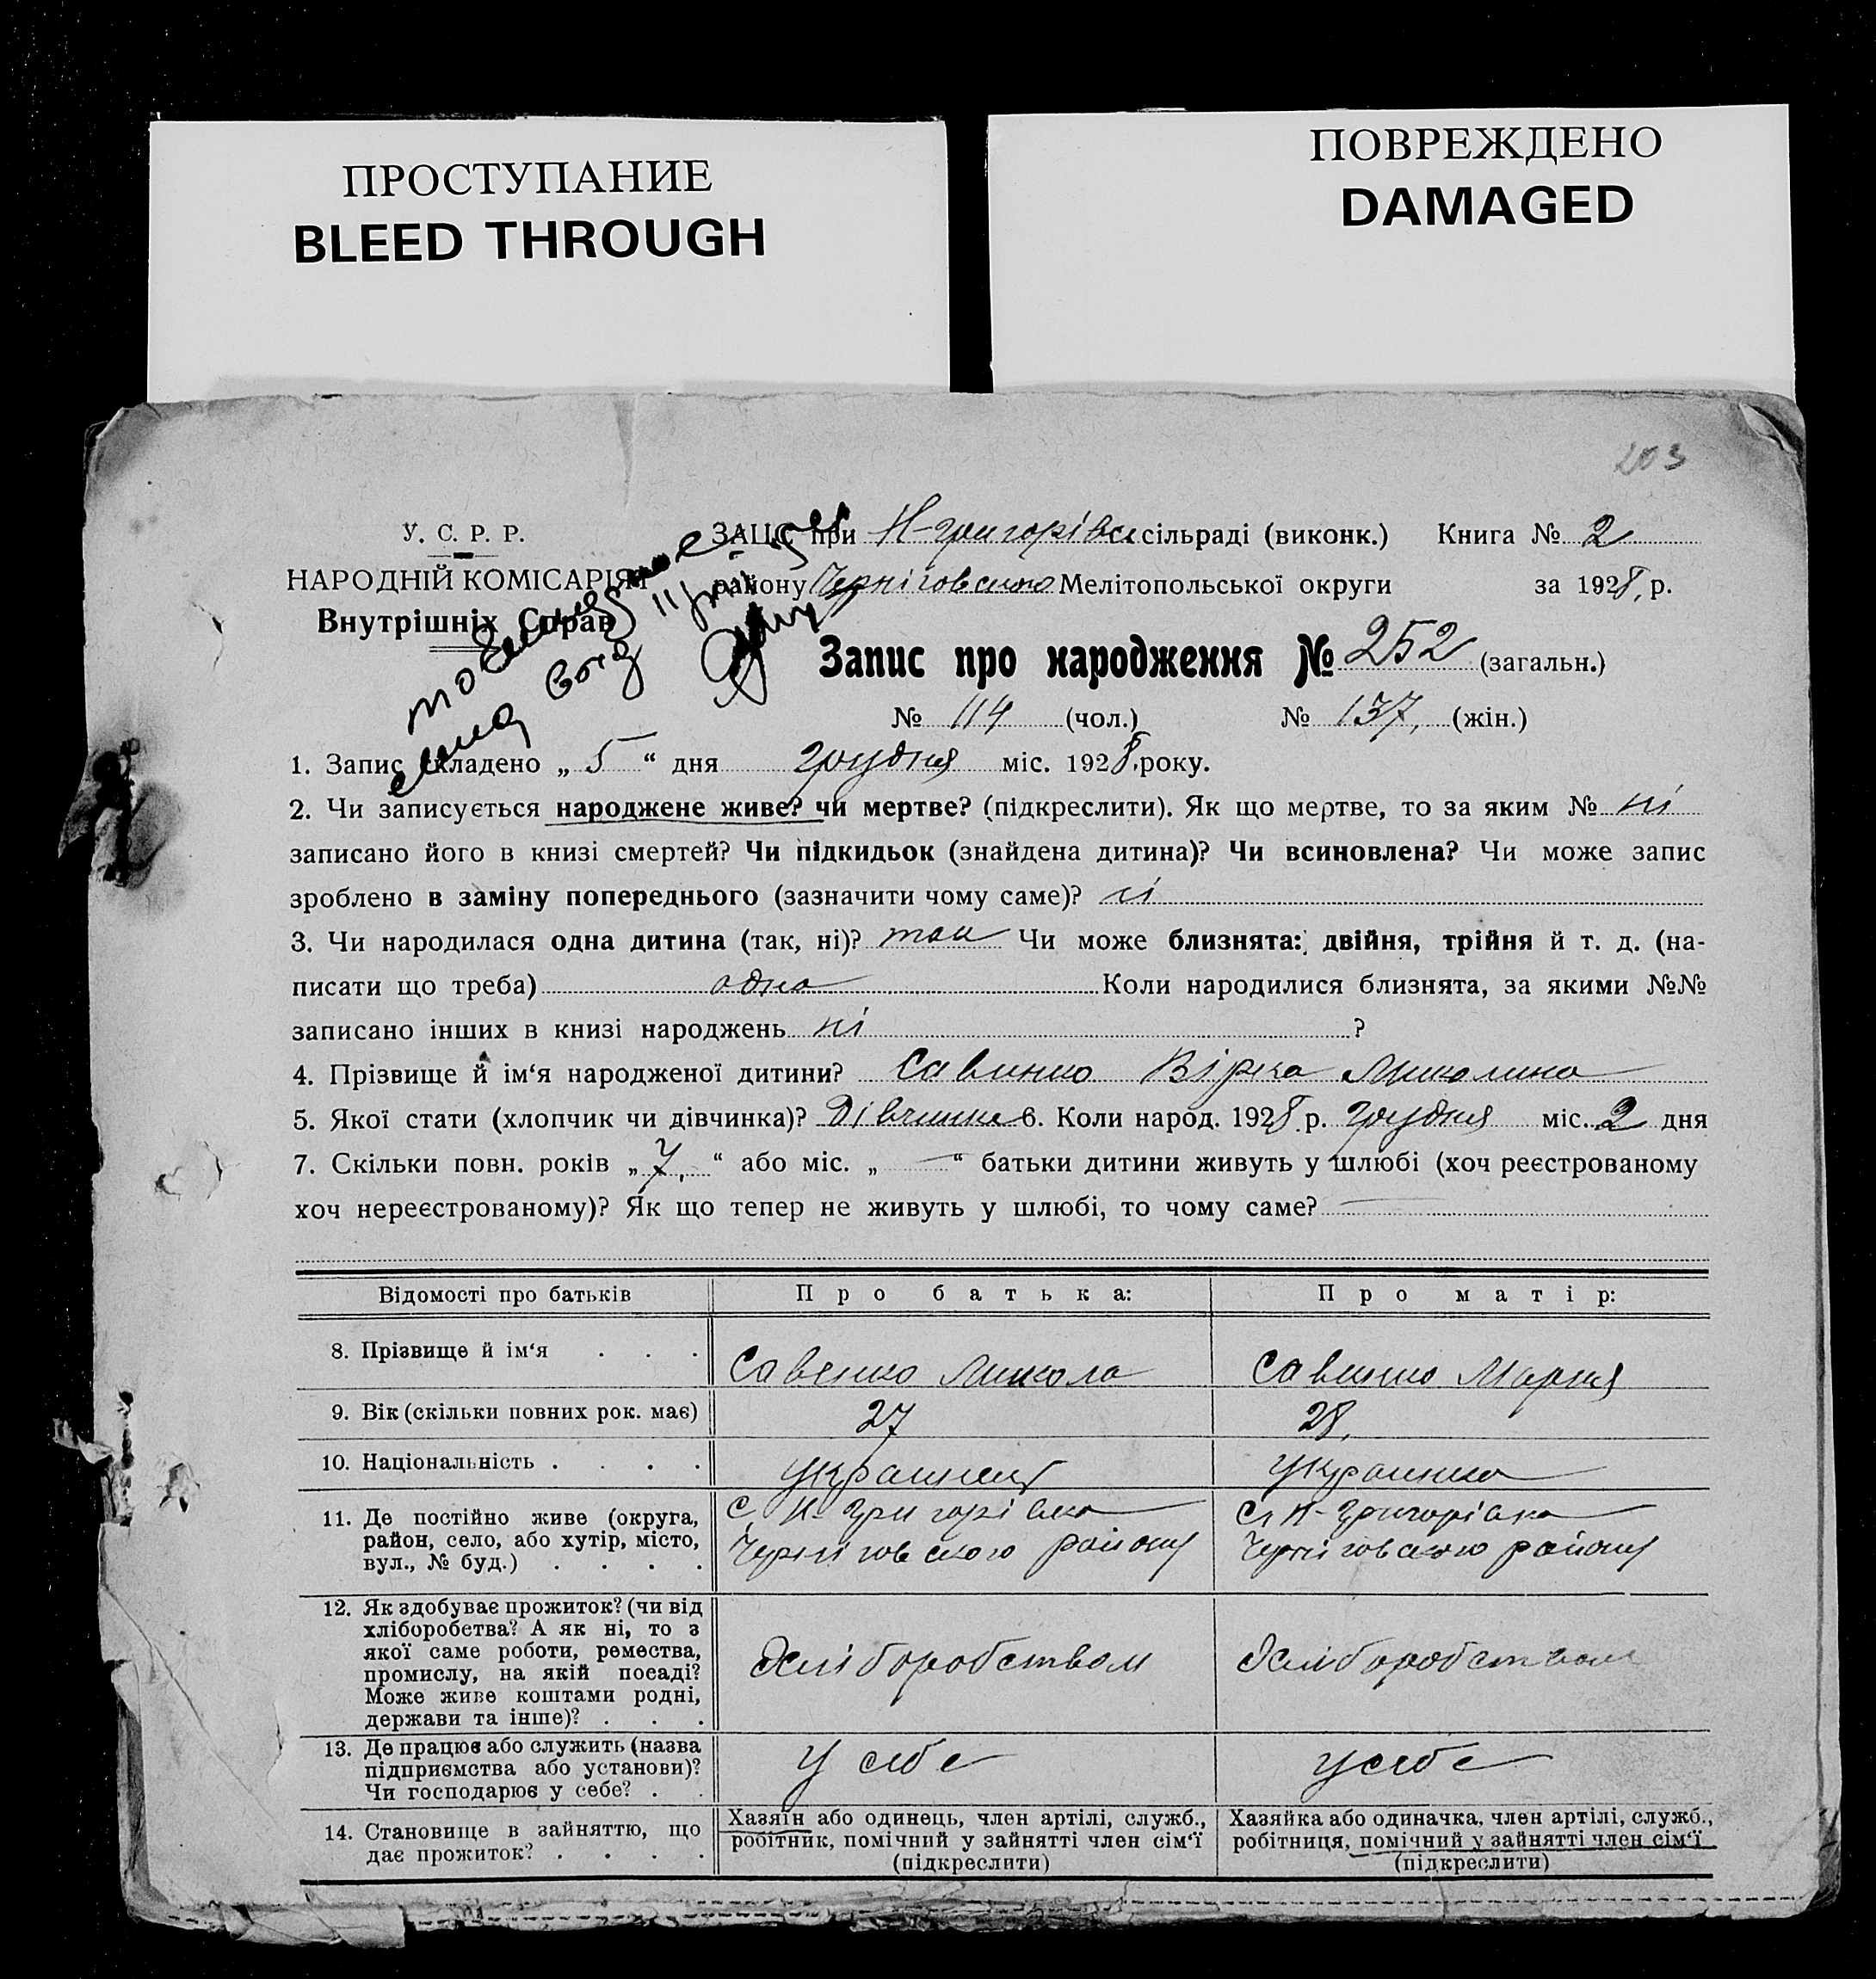 ПРОСТУПАНИЕ
BLEED THROUGH
ПОВРЕЖДЕНО
DAMAGED
203
У. С. Р. Р.
НАРОДНІЙ КОМІСАРІЯТ
Внутрішніх Справ
ЗАЦС при Н-Григорівск сільраді (виконк.) Книга № 2
району Черніговського Мелітопольської округи за 1928, р.
Запис про народження № 252 (загальн.)
№ 114 (чол.) № 137, (жін.)
1. Запис складено „ 5 “ дня грудня міс. 1928, року.
2. Чи записується народжене живе? чи мертве? (підкреслити). Як що мертве, то за яким № ні
записано його в книзі смертей? Чи підкидьок (знайдена дитина)? Чи всиновлена? Чи може запис
зроблено в заміну попереднього (зазначити чому саме)? ні
3. Чи народилася одна дитина (так, ні)? так Чи може близнята: двійня, трійня й т. д. (на-
писати що треба) одна Коли народилися близнята, за якими №№
записано інших в книзі народжень ні ?
4. Прізвище й ім‘я народженої дитини? Савинко Вірка Миколина
5. Якої стати (хлопчик чи дівчинка)? Дівчинка 6. Коли народ. 1928 р. грудня міс. 2 дня
7. Скільки повн. років „ 7, “ або міс. „ — “ батьки дитини живуть у шлюбі (хоч реєстрованому
хоч нереєстрованому)? Як що тепер не живуть у шлюбі, то чому саме? —
Відомості про батьків Про батька: Про матір:
8. Прізвище й ім‘я . . . Савенко Микола Савинко Мария
9. Вік (скільки повних рок. має) 27 28,
10. Національність . . . . Украинец Украинка
11. Де постійно живе (округа, район, село, або хутір, місто, вул., № буд.) . . . .
с. Н-Григорівка
Черніговського району
с. Н-Григорівка
Черніговського району
12. Як здобуває прожиток? (чи від
хліборобства? А як ні, то з
якої саме роботи, ремества,
промислу, на якій посаді?
Може живе коштами родні,
держави та інше)? . . .
Хліборобством Хліборобством
13. Де працює або служить (назва
підприємства або установи)?
Чи господарює у себе? . .
У себе у себе
14. Становище в зайняттю, що
дає прожиток? . . . .
Хазяїн або одинець, член артілі, служб.,
робітник, помічний у зайнятті член сім‘ї
(підкреслити)
Хазяйка або одиначка, член артілі, служб.,
робітниця, помічний у зайнятті член сім‘ї
(підкреслити)